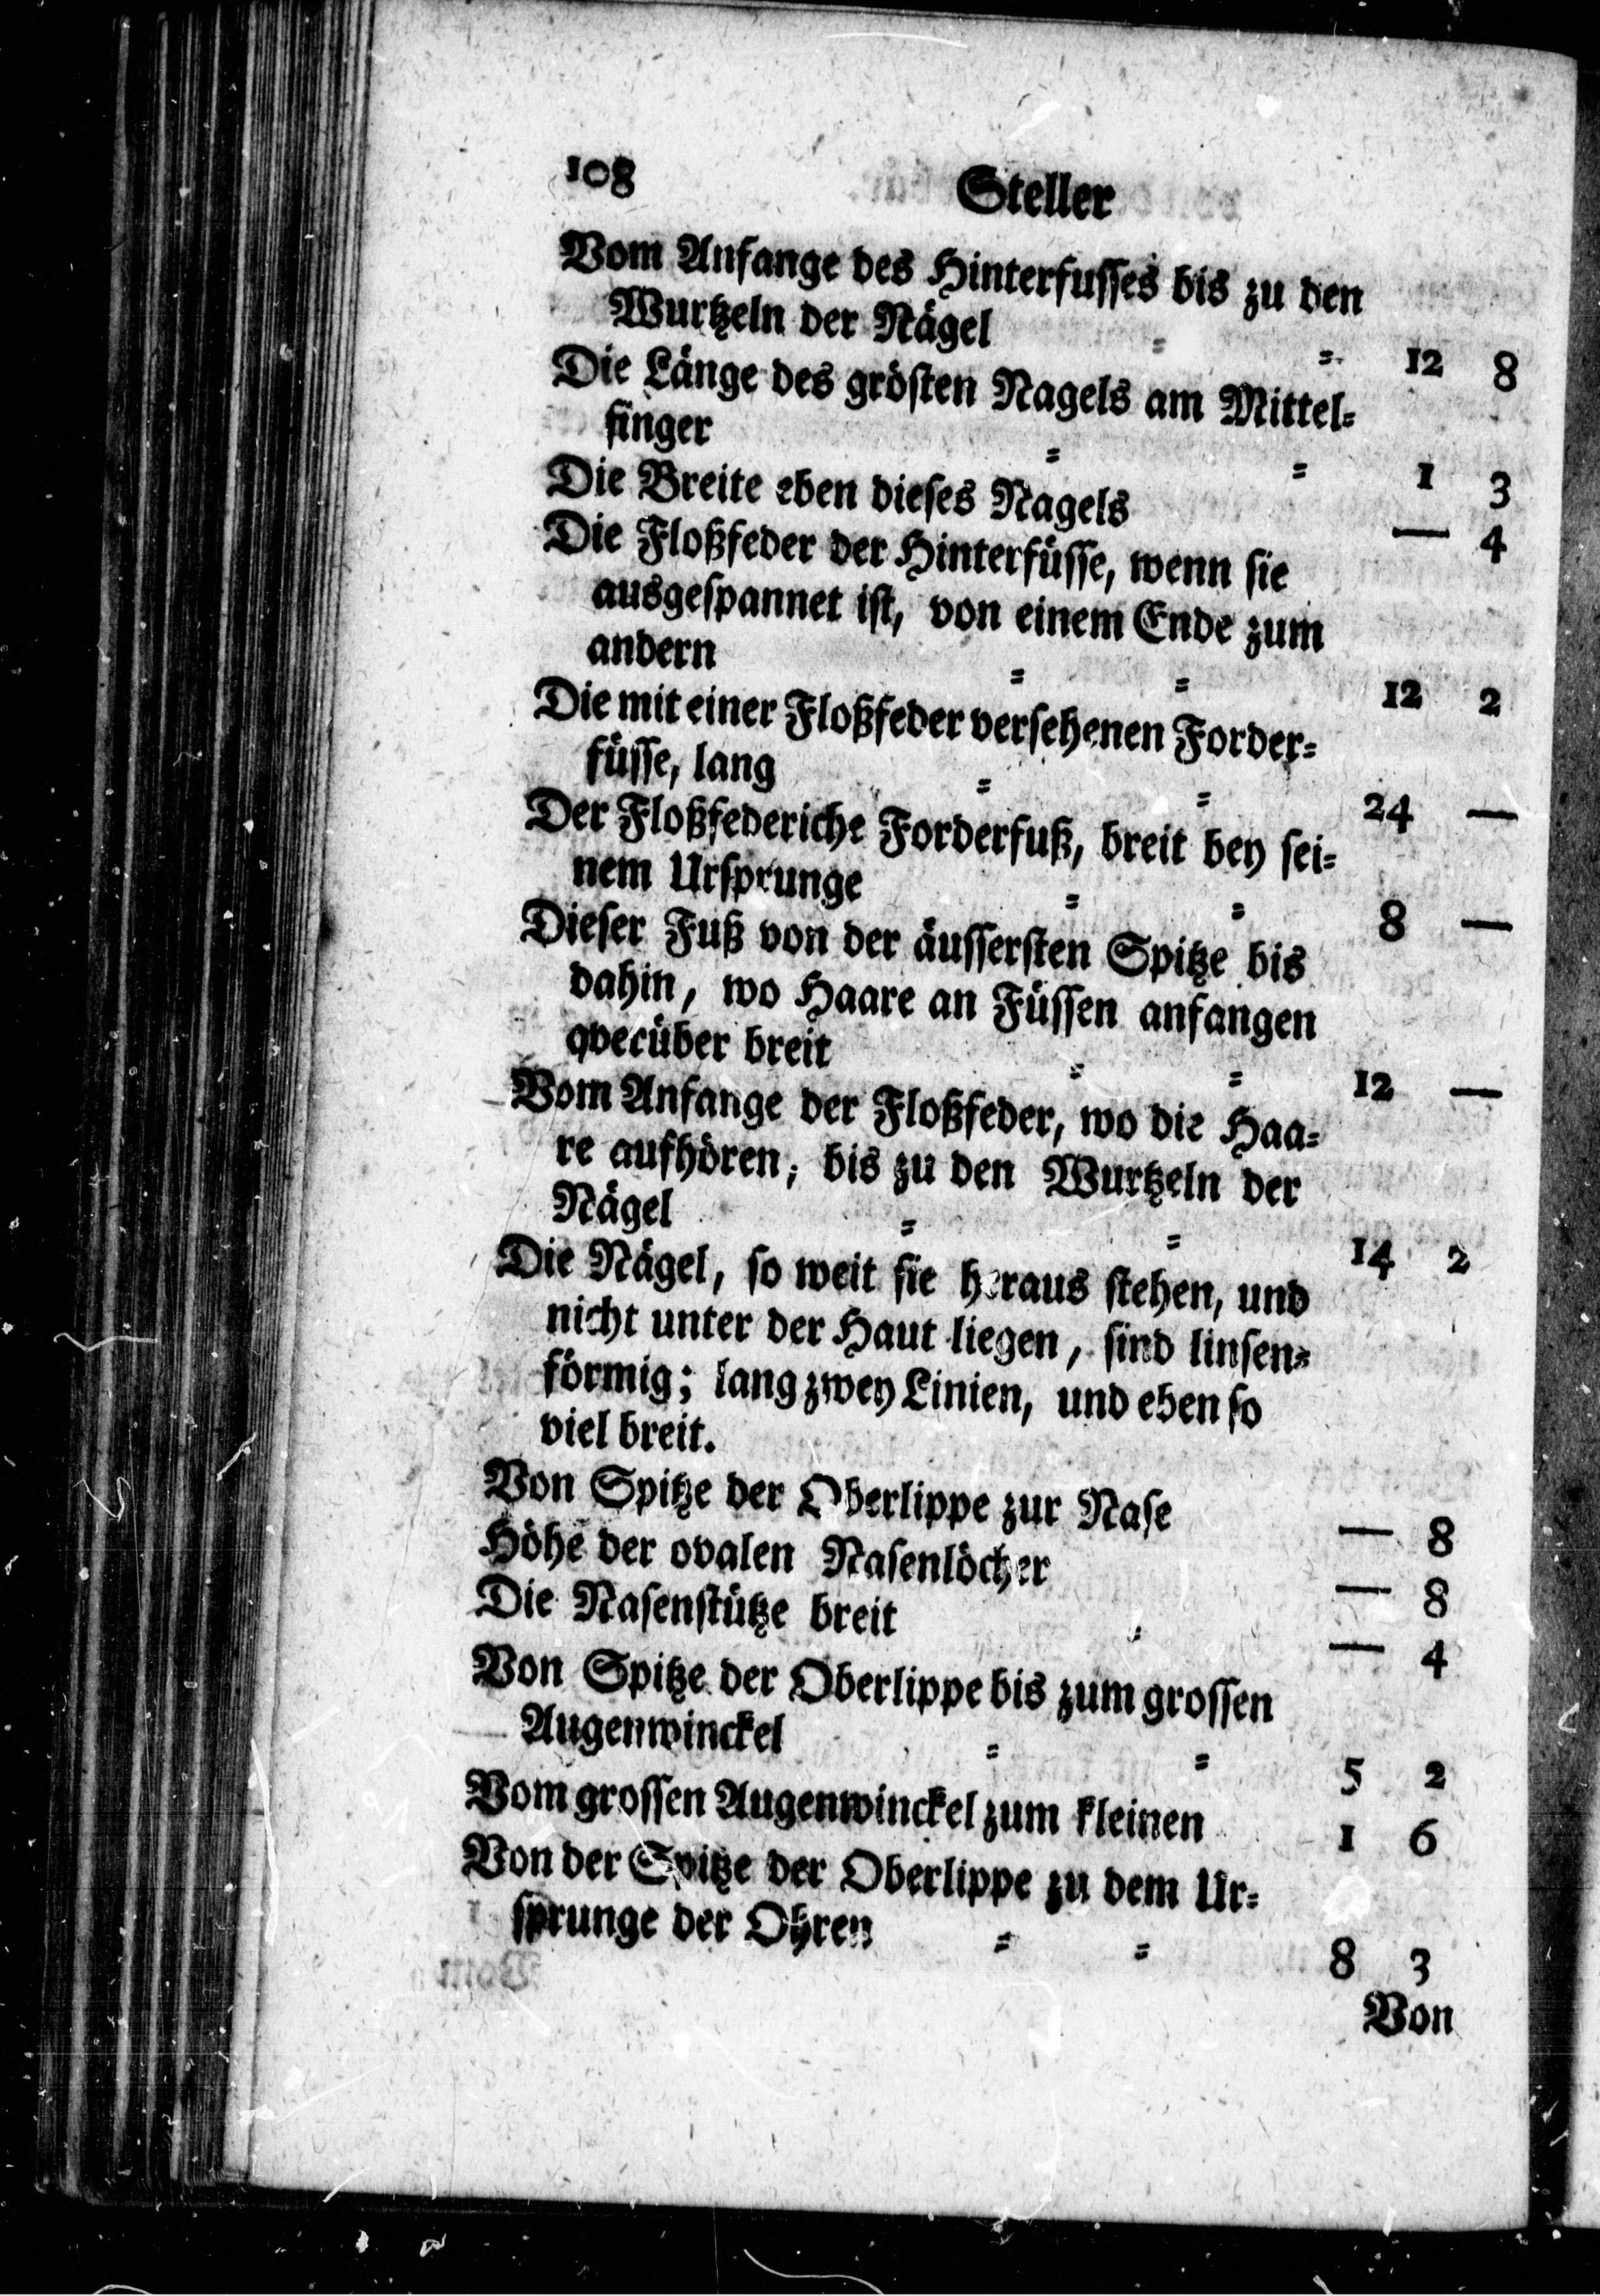 108 Steller
Vom Anfange des Hinterfusses bis zu den
Wurtzeln der Nägel = = 12 8
Die Länge des grösten Nagels am Mittel=
finger = = 1 3
Die Breite eben dieses Nagels — 4
Die Floßfeder der Hinterfüsse, wenn sie
ausgespannet ist, von einem Ende zum
andern = = 12 2
Die mit einer Floßfeder versehenen Forder=
füsse, lang = = 24 —
Der Floßfederiche Forderfuß, breit bey sei=
nem Ursprunge = = 8 —
Dieser Fuß von der äussersten Spitze bis
dahin, wo Haare an Füssen anfangen
qverüber breit = = 12 —
Vom Anfange der Floßfeder, wo die Haa=
re aufhören, bis zu den Wurtzeln der
Nägel = = 14 2
Die Nägel, so weit sie heraus stehen, und
nicht unter der Haut liegen, sind linsen=
förmig; lang zwey Linien, und eben so
viel breit.
Von Spitze der Oberlippe zur Nase — 8
Höhe der ovalen Nasenlöcher — 8
Die Nasenstütze breit = — 4
Von Spitze der Oberlippe bis zum grossen
Augenwinckel = = 5 2
Vom grossen Augenwinckel zum kleinen 1 6
Von der Spitze der Oberlippe zu dem Ur=
sprunge der Ohren = = 8 3
Von